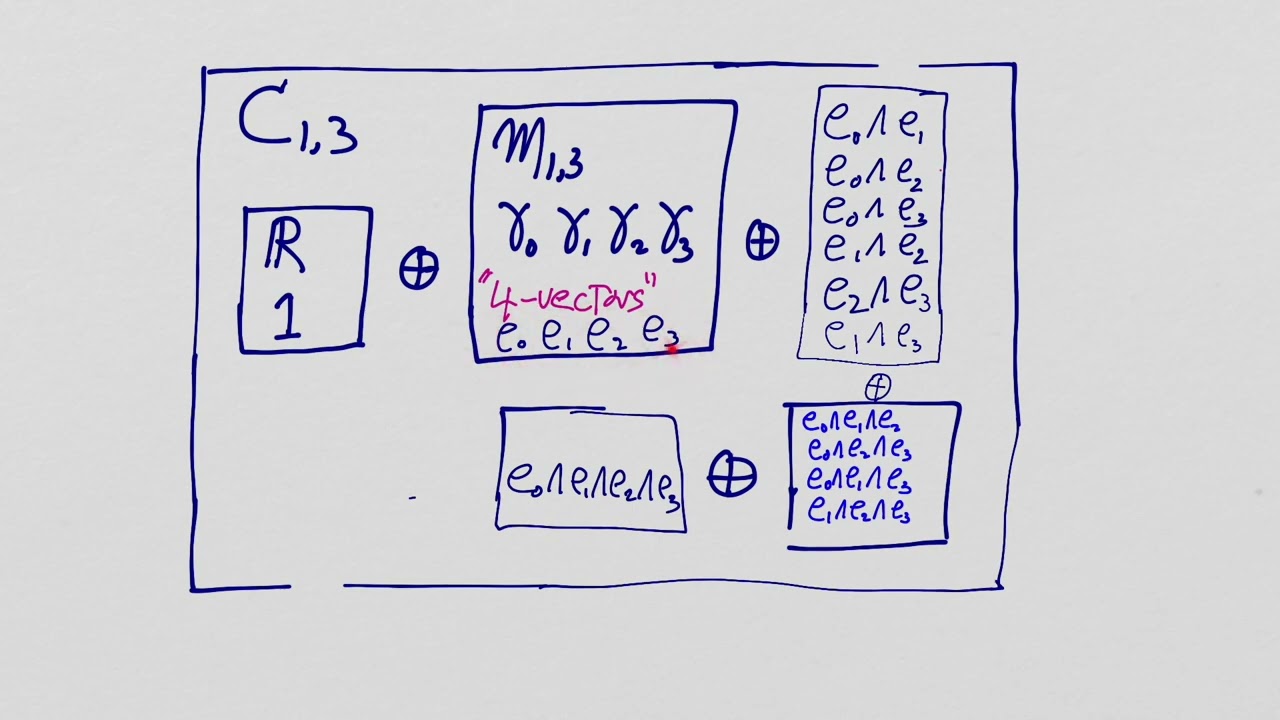 C₁,₃
ℝ
1
⊕
M₁,₃
γ₀ γ₁ γ₂ γ₃
"4-vectors"
e₀ e₁ e₂ e₃
⊕
e₀∧e₁
e₀∧e₂
e₀∧e₃
e₁∧e₂
e₂∧e₃
e₁∧e₃
⊕
e₀∧e₁∧e₂
e₀∧e₂∧e₃
e₀∧e₁∧e₃
e₁∧e₂∧e₃
⊕
e₀∧e₁∧e₂∧e₃